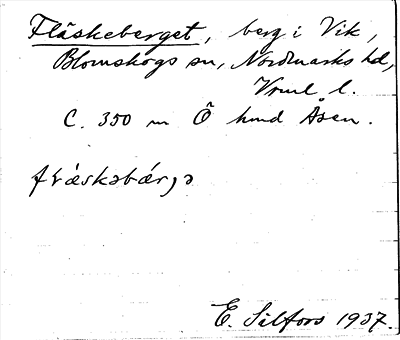 Fläskeberget, berg i Vik,
Blomskogs sn, Nordmarks hd,
Vrml l.
C. 350 m Ö hmd Åsen.
E. Sälfors 1937.